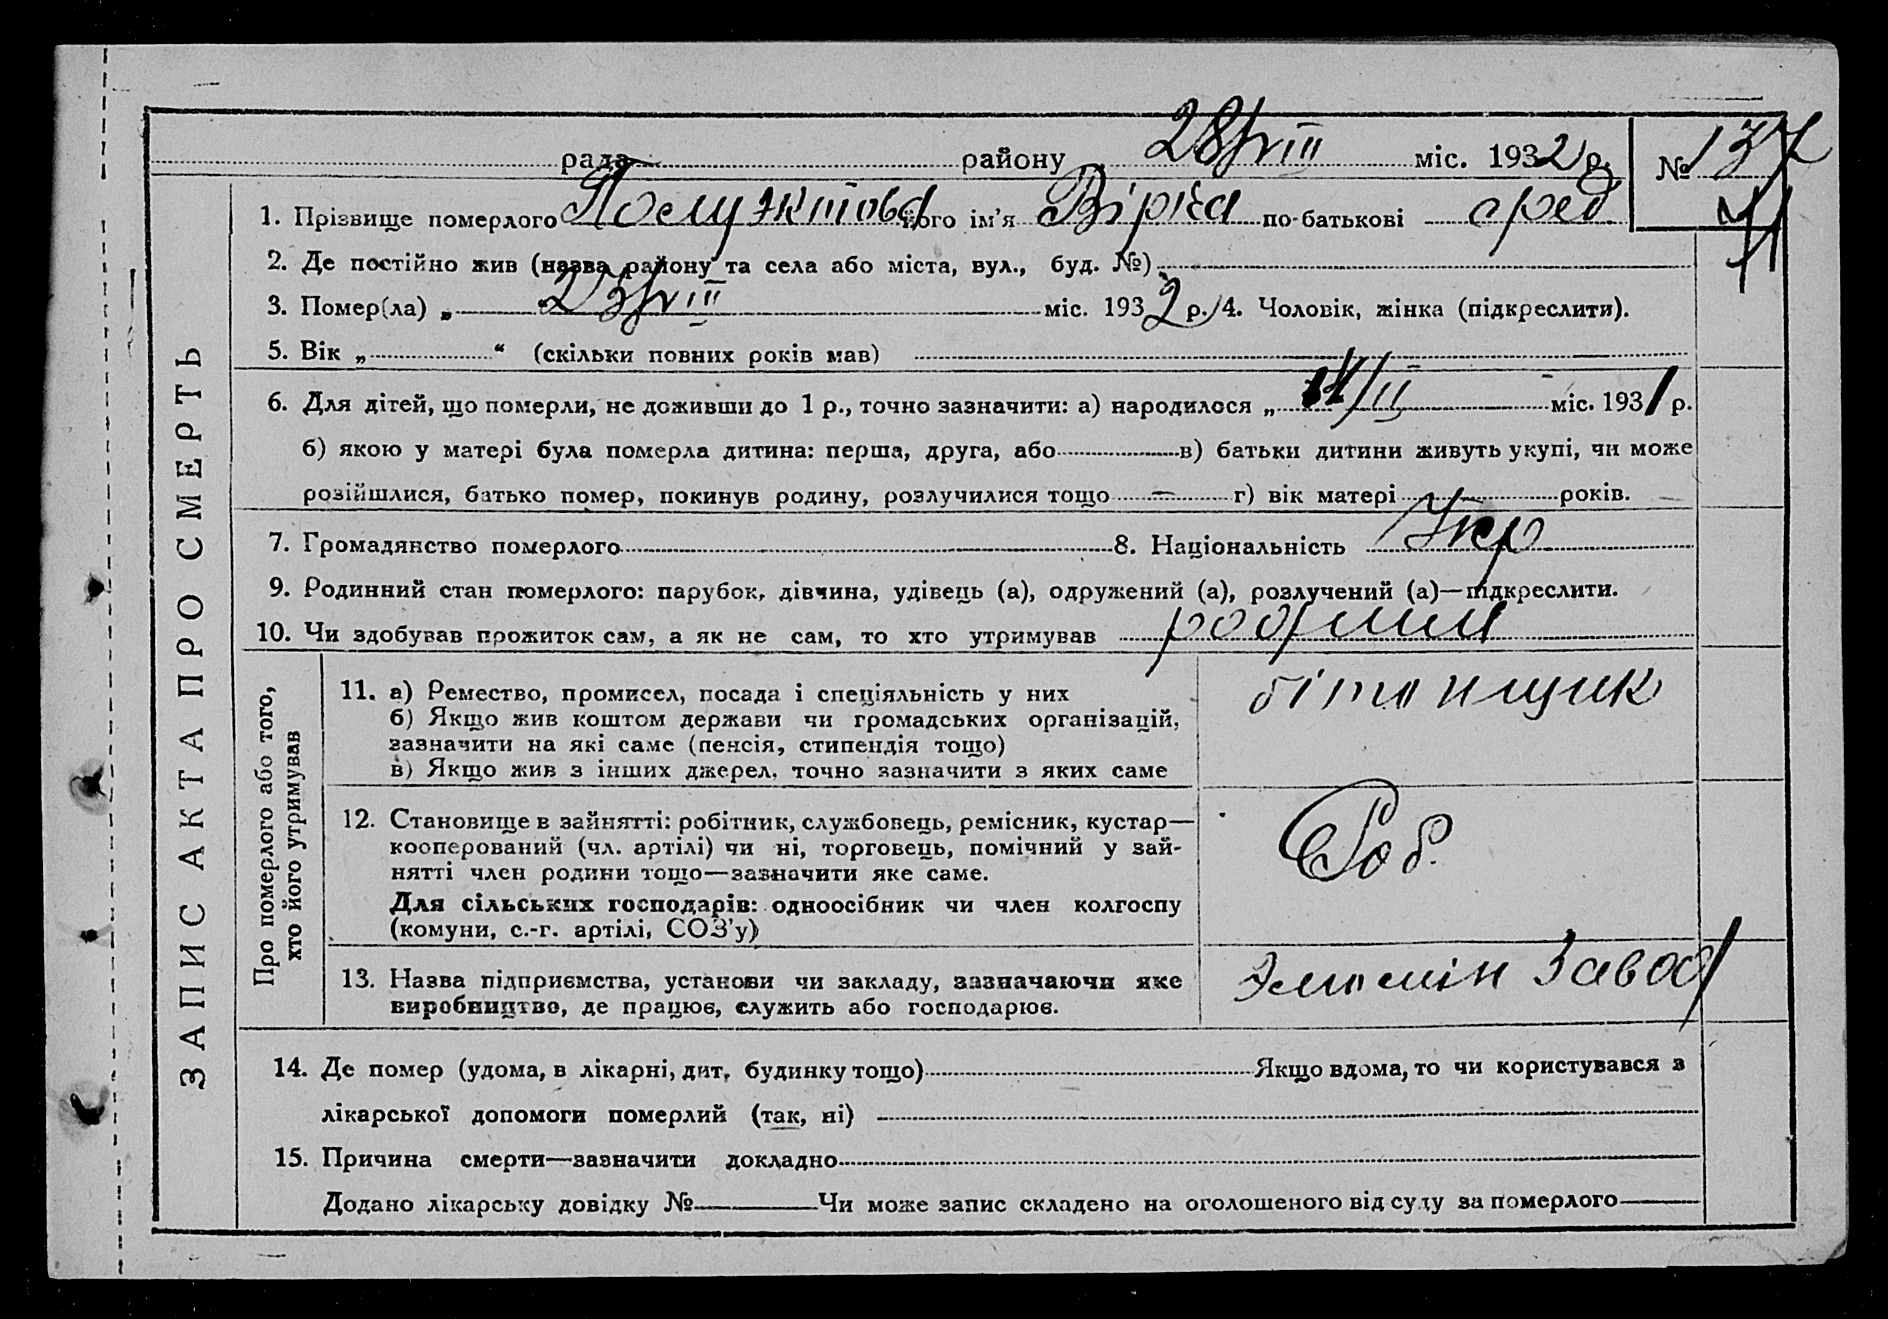 рада района 28/VIII міс. 1932 р. № 137
1. Прізвище померлого його ім’я Вірка по-батькові
2. Де постійно жив (назва району та села або міста, вул., буд. №)
3. Помер(ла) „ 25/VIII міс. 1932 р. 4. Чоловік, жінка (підкреслити).
5. Вік „ “ (скільки повних років мав)
6. Для дітей, що померли, не доживши до 1 р., точно зазначити: а) народилося „ /II міс. 1931 р.
б) якою у матері була померла дитина: перша, друга, або в) батьки дитини живуть укупі, чи може
розійшлися, батько помер, покинув родину, розлучилися тощо — г) вік матері років.
7. Громадянство померлого 8. Національність Укр
9. Родинний стан померлого: парубок, дівчина, удівець (а), одружений (а), розлучений (а)—підкреслити.
10. Чи здобував прожиток сам, а як не сам, то хто утримував
ЗАПИС АКТА ПРО СМЕРТЬ
Про померлого або того,
хто його утримував
11. а) Ремество, промисел, посада і спеціяльність у них
б) Якщо жив коштом держави чи громадських організацій,
зазначити на які саме (пенсія, стипендія тощо)
в) Якщо жив з інших джерел, точно зазначити з яких саме
бітонщик
12. Становище в зайнятті: робітник, службовець, ремісник, кустар—
кооперований (чл. артілі) чи ні, торговець, помічний у зай-
нятті член родини тощо—зазначити яке саме.
Для сільських господарів: одноосібник чи член колгоспу
(комуни, с.-г. артілі, СОЗ’у)
Роб.
13. Назва підприємства, установи чи закладу, зазначаючи яке
виробництво, де працює, служить або господарює.
Завод
14. Де помер (удома, в лікарні, дит. будинку тощо) Якщо вдома, то чи користувався з
лікарської допомоги померлий (так, ні)
15. Причина смерти—зазначити докладно
Додано лікарську довідку № Чи може запис складено на оголошеного від суду за померлого